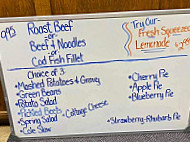 Roast Beef
or
Beef & Noodles
or
Cod Fish Fillet
Try Our-
Fresh Squeezed
Lemonade
Choice of 3
• Mashed Potatoes & Gravy
• Green Beans
• Potato Salad
• Pickled Beets
• Cottage Cheese
• Spring Salad
• Cole Slaw
• Cherry Pie
• Apple Pie
• Blueberry Pie
• Strawberry-Rhubarb Pie